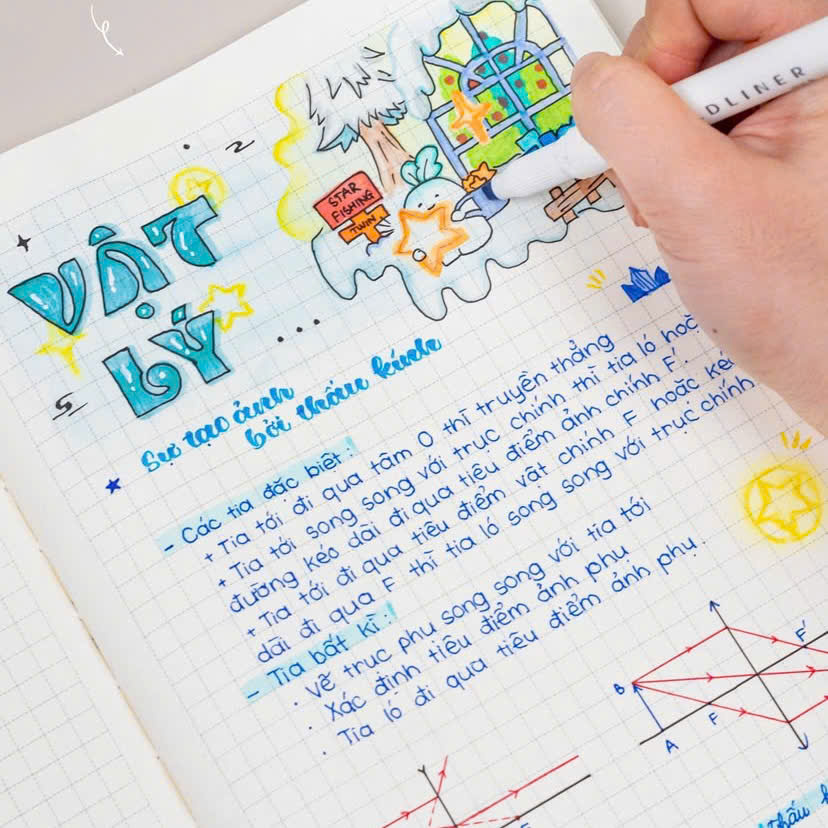 VẬT
LÝ ...
STAR
FISHING
TWIN
DLINER
Sự tạo ảnh
bởi thấu kính
- Các tia đặc biệt:
+ Tia tới đi qua tâm O thì truyền thẳng
+ Tia tới song song với trục chính thì tia ló hoặc
đường kéo dài đi qua tiêu điểm ảnh chính F'.
+ Tia tới đi qua tiêu điểm vật chính F hoặc kéo
dài đi qua F thì tia ló song song với trục chính.
- Tia bất kì:
· Vẽ trục phụ song song với tia tới
· Xác định tiêu điểm ảnh phụ
· Tia ló đi qua tiêu điểm ảnh phụ.
B
A
F
F'
thấu